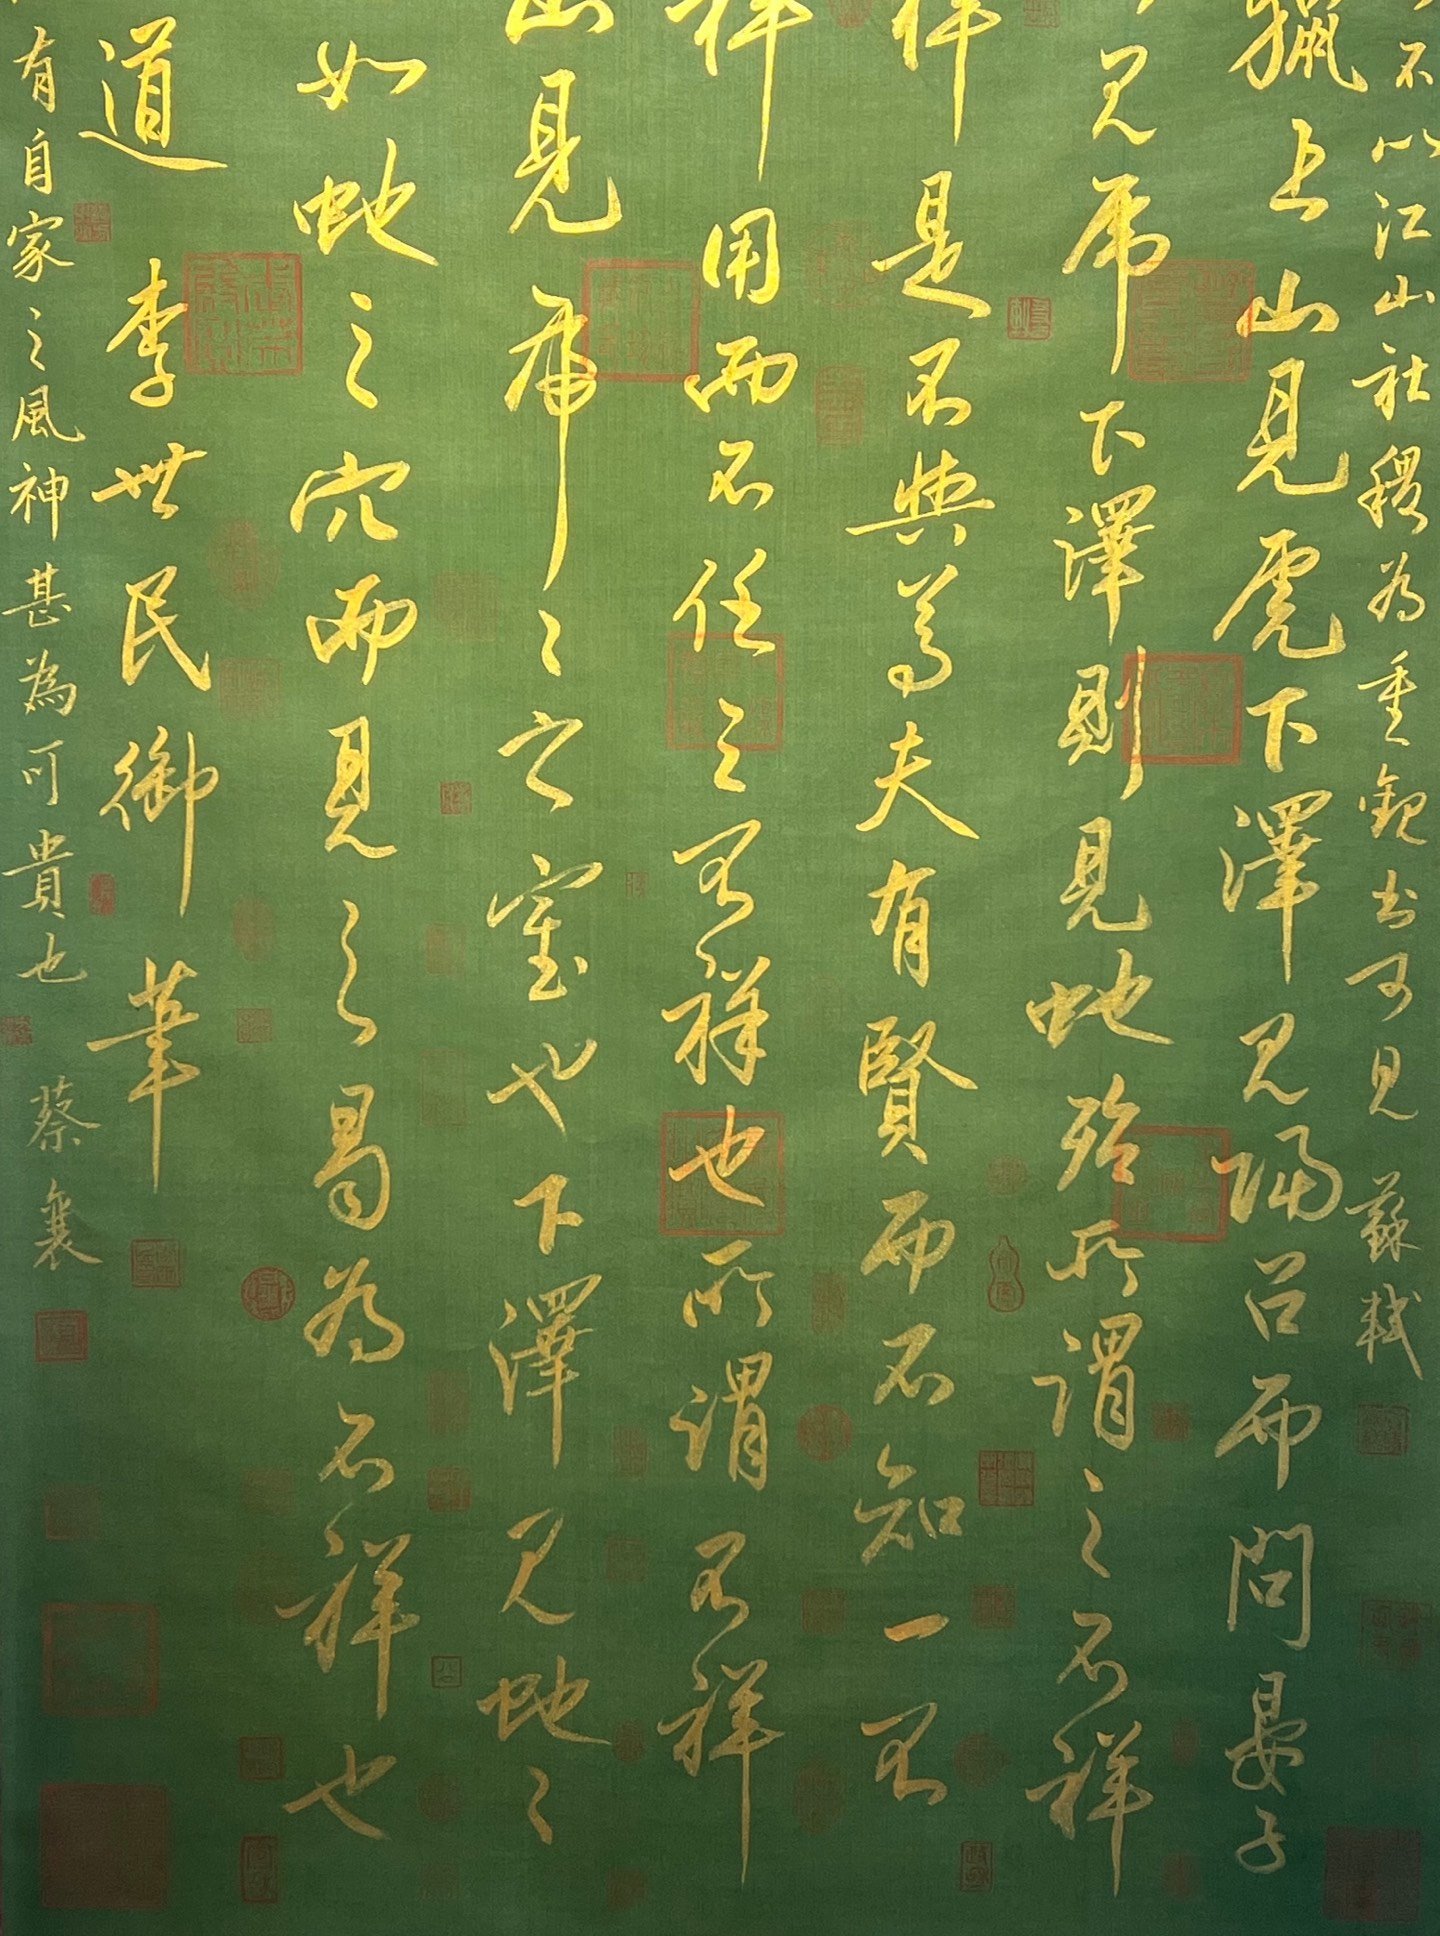 不以江山社稷為重觀書可見 蘇軾
獵上山見虎下澤見歸召而問晏子
見虎下澤則見蛇殆所謂之不祥
祥是不與焉夫有賢而不知一不
祥用而不任三不祥也所謂不祥
山見虎々之室也下澤見蛇々
如蛇之穴而見之曷為不祥也
道 李世民御筆
有自家之風神甚為可貴也 蔡襄